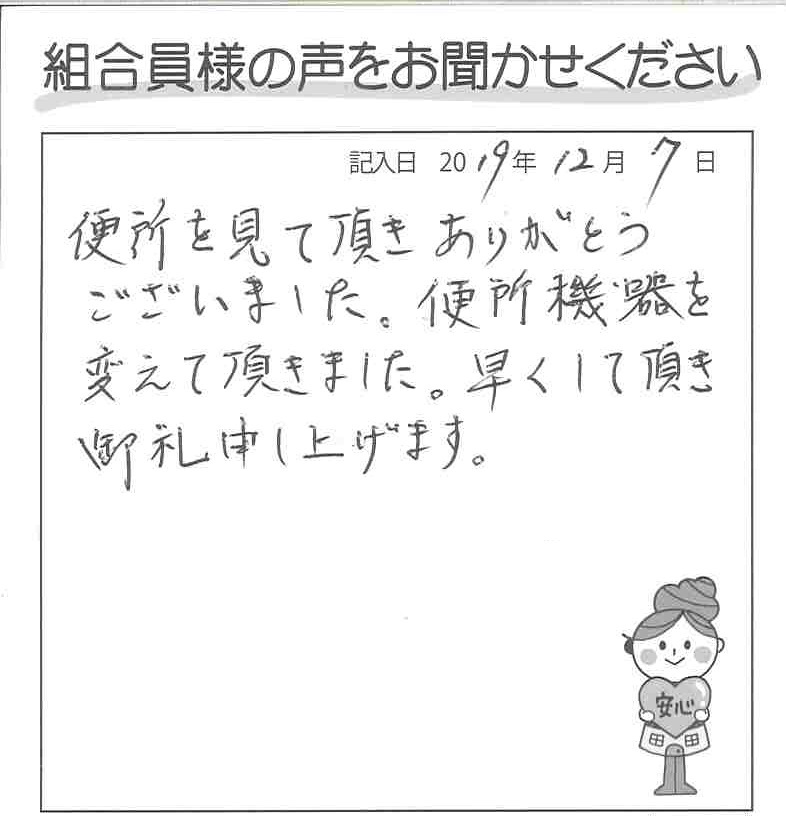 組合員様の声をお聞かせください
記入日 2019年 12月 7日
便所を見て頂きありがとう
ございました。便所機器を
変えて頂きました。早くして頂き
御礼申し上げます。
安心